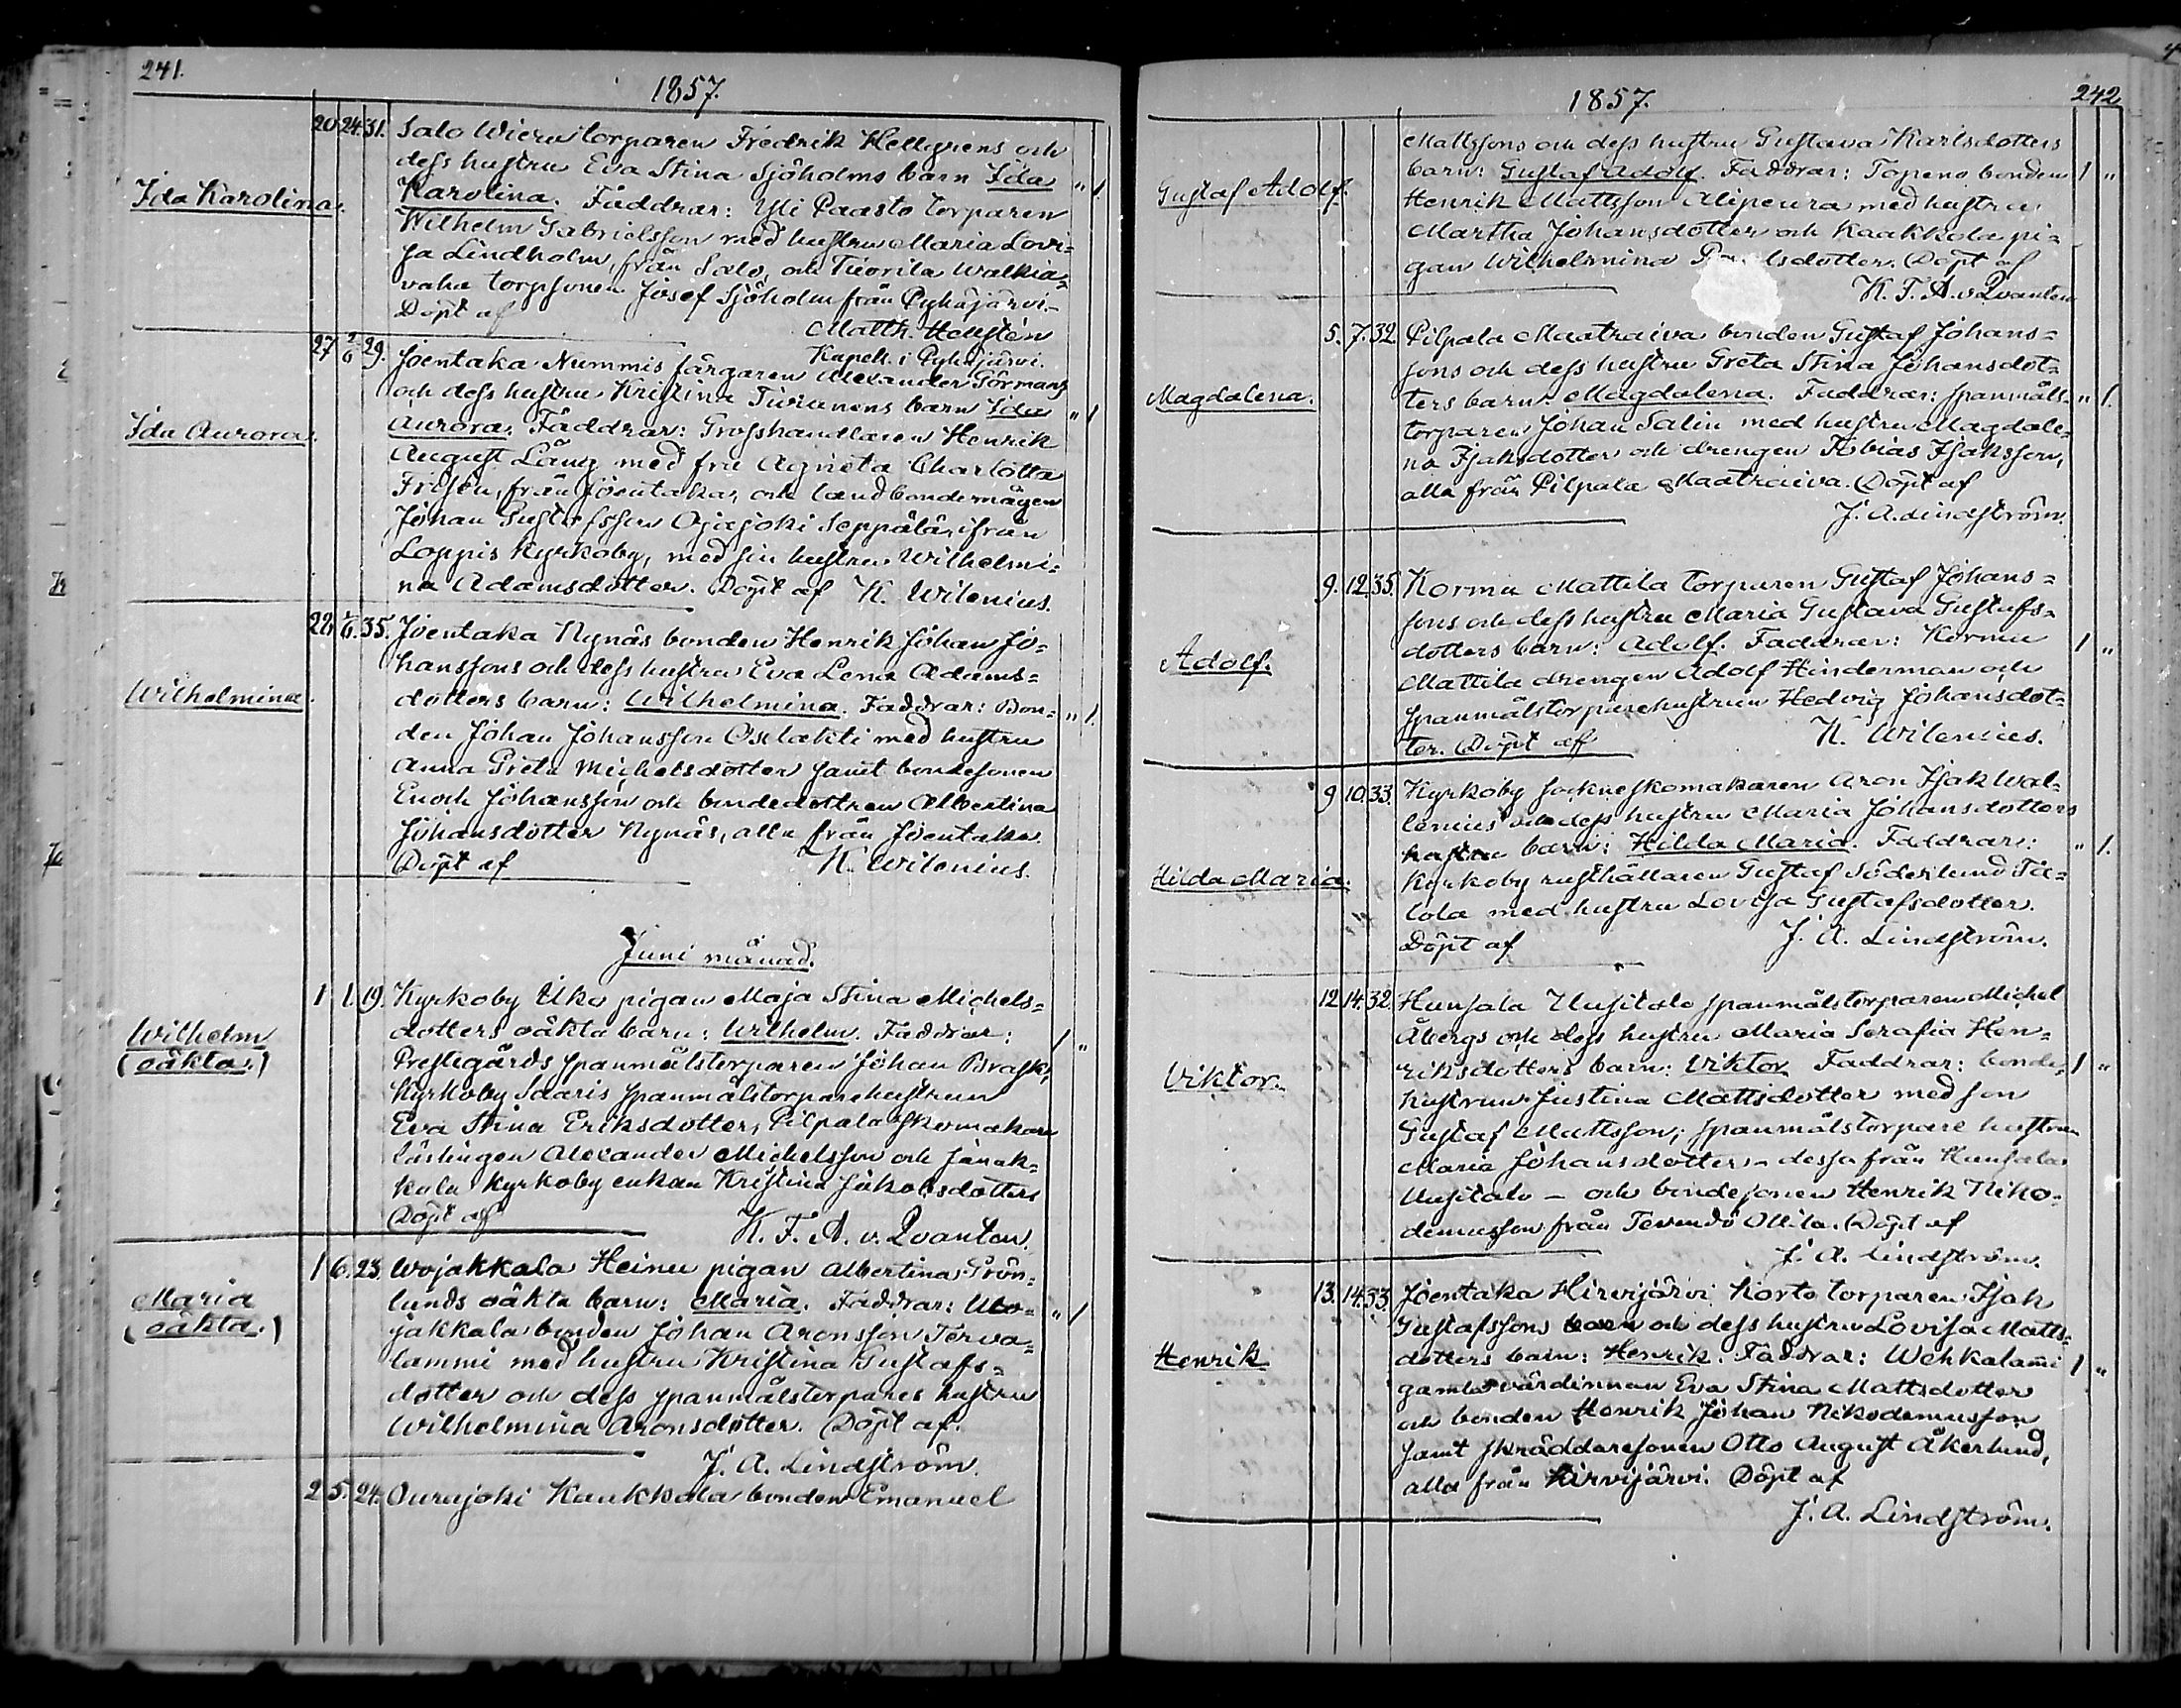 241.
1857.
20. 24. 31. Salo Wieru torparen Fredrik Hellgrens och
dess hustru Eva Stina Sjöholms barn Ida
Ida Karolina. Karolina. Faddrar: Yli Paasto torparen " 1.
Wilhelm Gabrielsson med hustru Maria Lovi=
sa Lindholm, från Salo, och Tuorila Walkia=
vaha torpsonen Josef Sjöholm från Pyhäjärvi.
Döpt af Matth. Hellstén
Kapell. i Pyhäjärvi.
27 2/6 29. Joentaka Nummis färgaren Alexander Görmans
och dess hustru Kristina Turanens barn Ida " 1
Ida Aurora. Aurora. Faddrar: Grosshandlaren Henrik
August Lång med fru Agneta Charlotta
från Joentaka, och landbondemågen
Johan Gustafsson Ojajoki Seppälä, ifrån
Loppis Kyrkoby, med sin hustru Wilhelmi=
na Adamsdotter. Döpt af K. Wilenius.
22 1/6 35. Joentaka Nynäs bonden Henrik Johan Jo=
hanssons och dess hustru Eva Lena Adams=
Wilhelmina. dotters barn: Wilhelmina. Faddrar: Bon= " 1.
den Johan Johansson Oxlakti med hustru
Anna Greta Michelsdotter samt bondesonen
Enoch Johansson och bondedottren Albertina
Johansdotter Nynäs, alla från Joentaka.
Döpt af K. Wilenius.
Juni månad.
1 1. 19. Kyrkoby Uka pigan Maja Stina Michels=
Wilhelm dotters oäkta barn: Wilhelm. Faddrar: 1 "
(oäkta.) Prestegårds spanmålstorparen Johan Brask,
Kyrkoby Saaris spanmålstorparehustrun
Eva Stina Eriksdotter, Pilpala skomakare
lärlingen Alexander Michelsson och Janak=
kala Kyrkoby enkan Kristina Jakobsdotter
Döpt af K. F. A. v. Qvanten.
1 6. 23. Wojakkala Heinu pigan Albertina Grön=
Maria lunds oäkta barn: Maria. Faddrar: Wo= " 1
(oäkta.) jakkala bonden Johan Aronsson Terva=
lammi med hustru Kristina Gustafs=
dotter och dess spanmålstorpares hustru
Wilhelmina Aronsdotter. Döpt af.
J. A. Lindström.
2 5. 24. Ourajoki Kaukkala bonden Emanuel
1857. 242
Mattssons och dess hustru Gustava Karlsdotters
Gustaf Adolf. barn: Gustaf Adolf. Faddrar: Topeno bonden 1 "
Henrik Mattsson Alipeura med hustru
Martha Johansdotter och Kaakkola pi=
gan Wilhelmina Döpt af
K. F. A. v Qvanten
5. 7. 32. Pilpala Maatraiva bonden Gustaf Johans=
sons och dess hustru Greta Stina Johansdot=
Magdalena. ters barn: Magdalena. Faddrar: spanmåls= " 1.
torparen Johan Salin med hustru Magdale=
na Isaksdotter och drengen Tobias Isaksson,
alla från Pilpala Maatraiva. Döpt af
J. A. Lindström.
9. 12. 35. Kormu Mattila torparen Gustaf Johans=
sons och dess hustru Maria Gustava Gustafs=
Adolf. dotters barn: Adolf. Faddrar: Kormu 1 "
Mattila drengen Adolf Hinderman och
spanmålstorparehustrun Hedvig Johansdot=
ter. Döpt af K. Wilenius.
9 10. 33. Kyrkoby socknesskomakaren Aron Isak Wal=
lenius och dess hustru Maria Johansdotters
hustru barn: Hilda Maria. Faddrar: " 1.
Hilda Maria. Kyrkoby rusthållaren Gustaf Söderlund Ta=
lola med hustru Lovisa Gustafsdotter.
Döpt af J. A. Lindström.
12. 14. 32. Hunsala Uusitalo spanmålstorparen Michel
Åbergs och dess hustru Maria Serafia Hen=
Viktor. riksdotters barn: Viktor. Faddrar: bonde= 1 "
hustrun Justina Mattsdotter med son
Gustaf Mattsson; spanmålstorpare hustrun
Maria Johansdotter, – dessa från Hunsala
Uusitalo – och bondesonen Henrik Niko=
demusson från Tevendö Ollila. Döpt af
J. A. Lindström.
13. 14. 33. Joentaka Hirvijärvi Korto torparen Isak
Gustafssons barn och dess hustru Lovisa Matts=
Henrik dotters barn: Henrik. Faddrar: Wehkalami 1 "
gamla värdinnan Eva Stina Mattsdotter
och bonden Henrik Johan Nikodemusson
samt skräddaresonen Otto August Åkerlund,
alla från Hirvijärvi. Döpt af
J. A. Lindström.